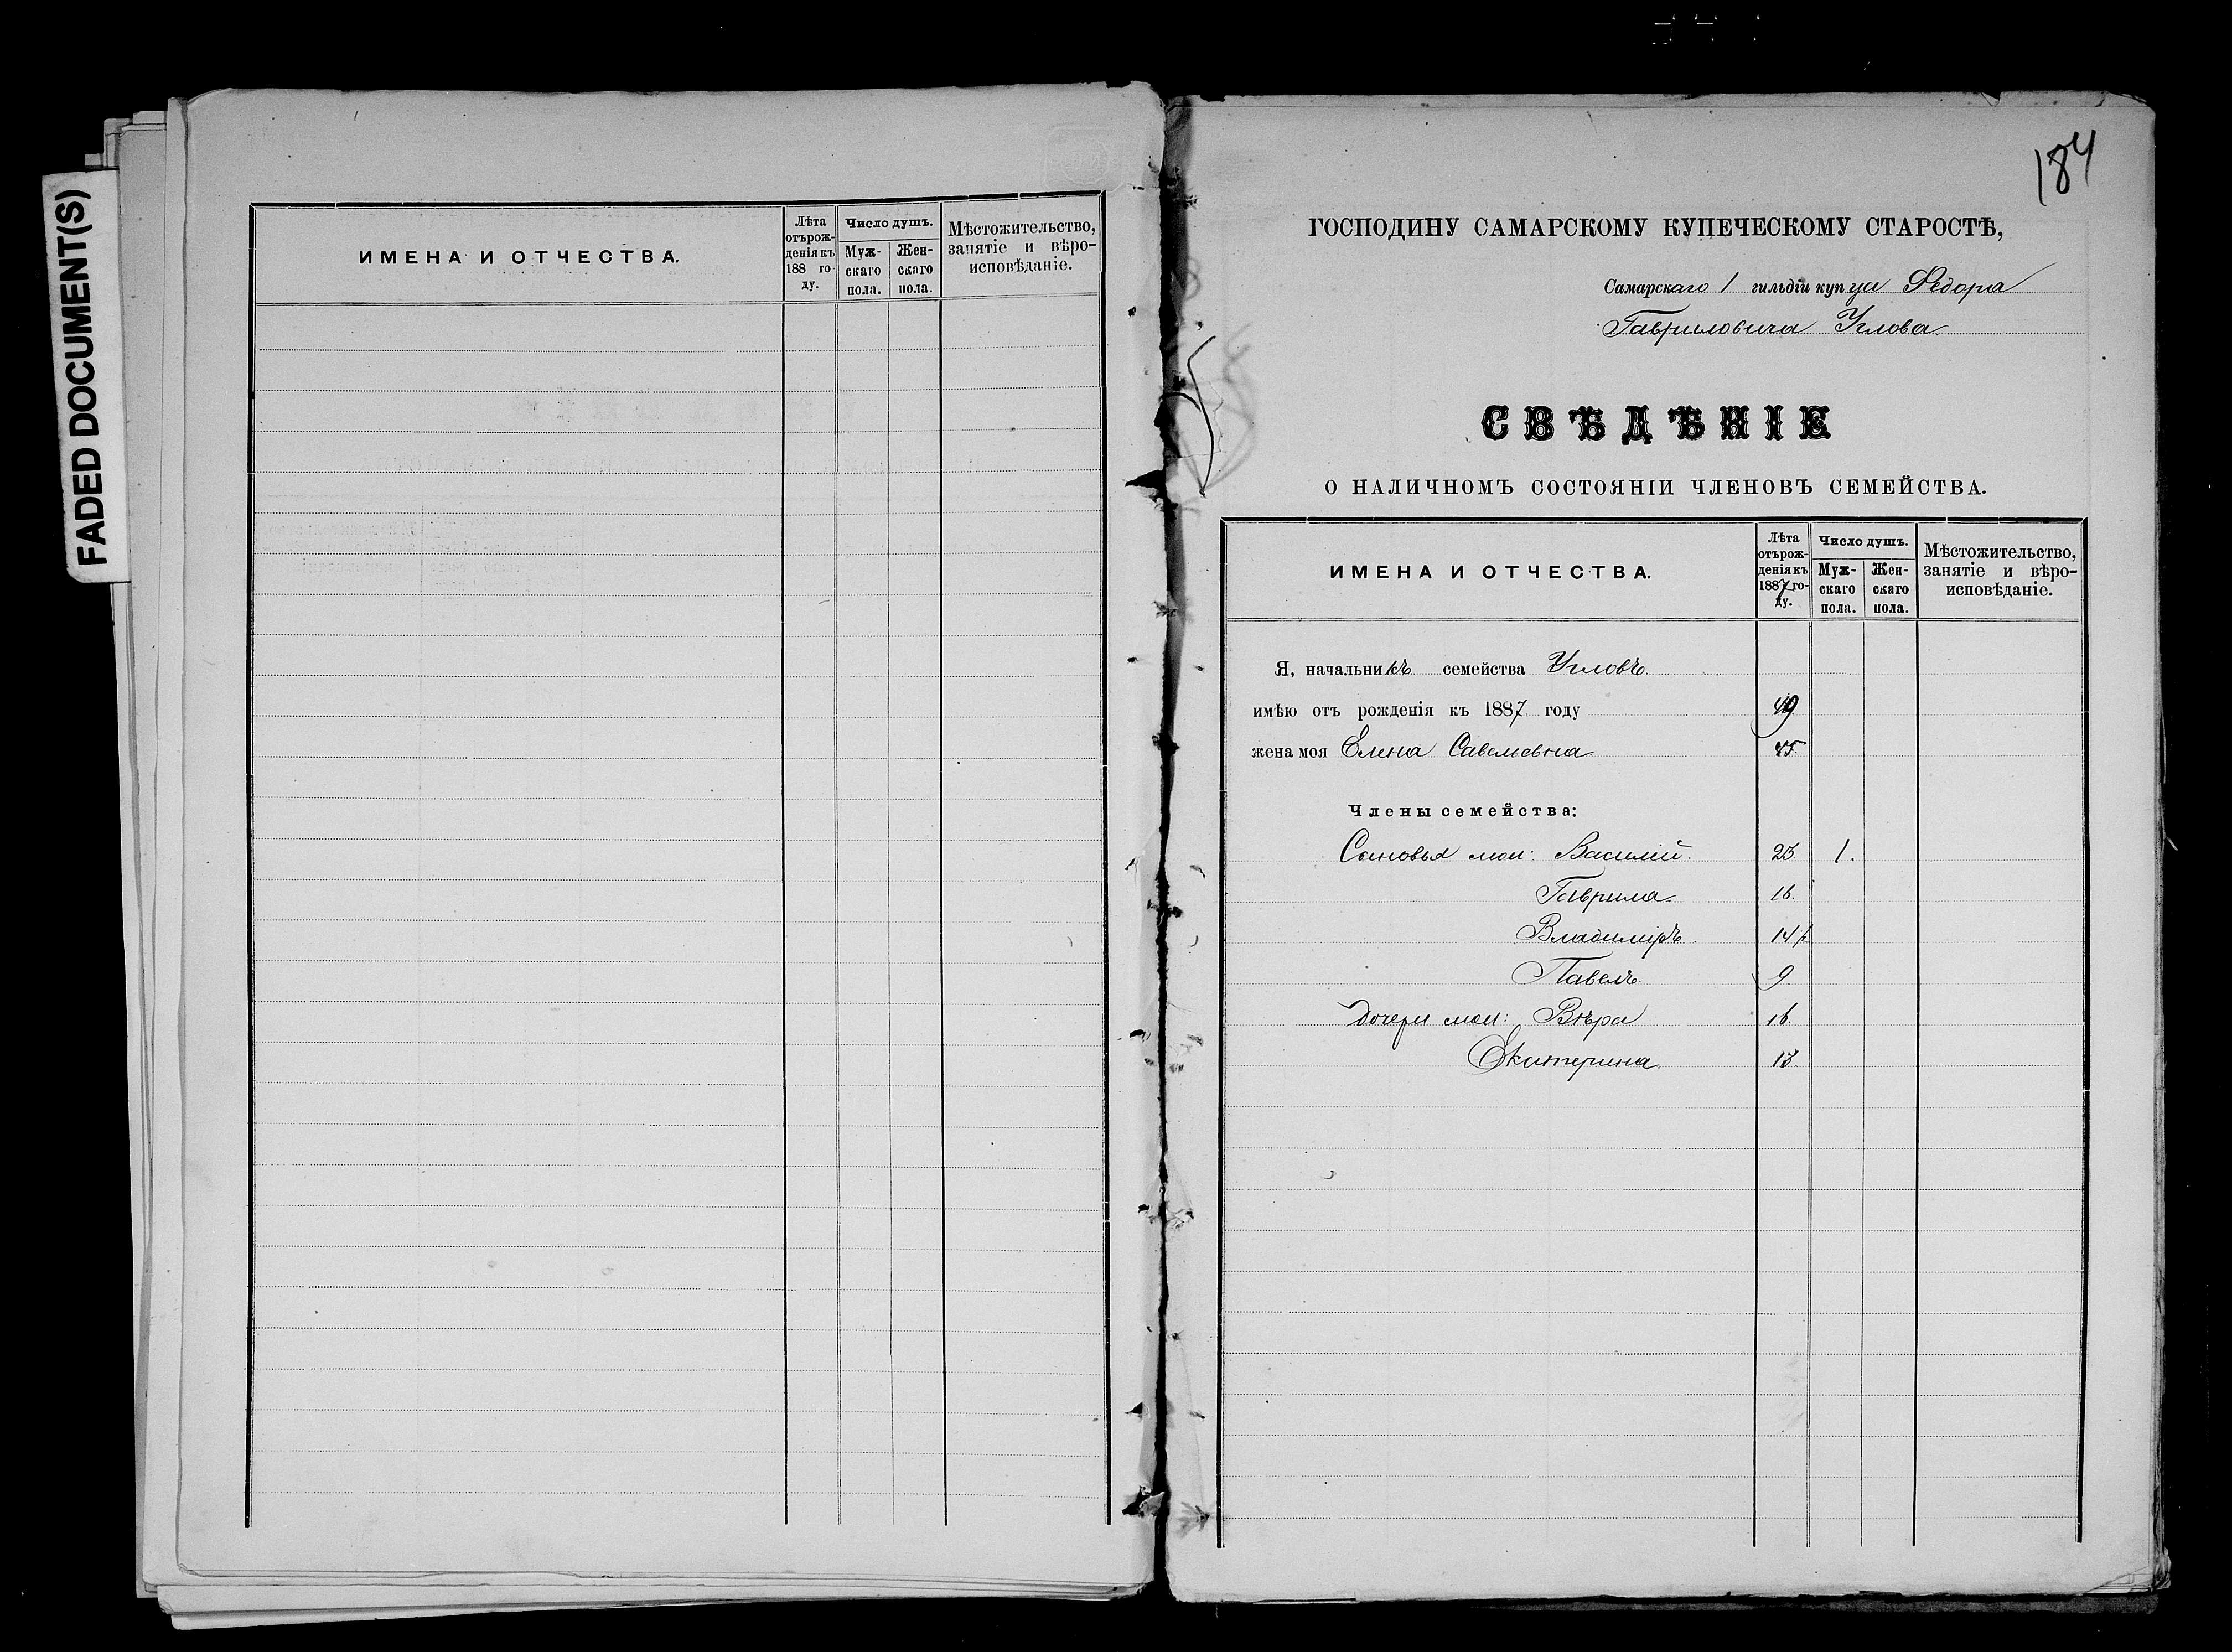 FADED DOCUMENT(S)
ИМЕНА И ОТЧЕСТВА.
Лѣта
отърож-
денія къ
188 го-
ду.
Число душъ.
Муж-
скаго
пола.
Жен-
скаго
пола.
Мѣстожительство,
занятіе и вѣро-
исповѣданіе.
184
ГОСПОДИНУ САМАРСКОМУ КУПЕЧЕСКОМУ СТАРОСТѢ,
Самарскаго 1 гильдіи купца Федора
Гавриловича Углова
СВѢДѢНІЕ
О НАЛИЧНОМЪ СОСТОЯНІИ ЧЛЕНОВЪ СЕМЕЙСТВА.
ИМЕНА И ОТЧЕСТВА.
Лѣта
отърож-
денія къ
1887 го-
ду.
Число душъ.
Муж-
скаго
пола.
Жен-
скаго
пола.
Мѣстожительство,
занятіе и вѣро-
исповѣданіе.
Я, начальникъ семейства Угловъ
имѣю отъ рожденія къ 1887 году 49
жена моя Елена Савельевна 45
Члены семейства:
Сыновья мои: Василій. 23 1.
Гаврила 16.
Владиміръ. 14
Павелъ 9.
Дочери мои: Вѣра 16
Екатерина 13.